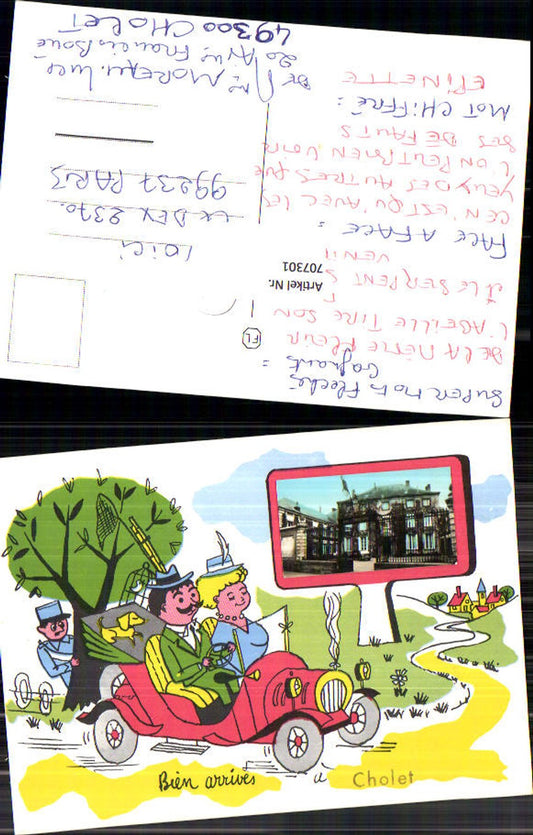 SUPER MOTS Fléchés
Gagnants =
DE LA MÊME FLEUR
L'ABEILLE TIRE SON
ET LE SERPENT S
VENIN
FACE A FACE =
CE N'EST QU'AVEC LES
YEUX DES AUTRES QUE
L'ON PEUT BIEN VOIR
SES DEFAUTS
MOT CHIFFRÉ =
EPINETTE
FL
Artikel Nr.
707301
ICI
CEDEX 2370.
99237 PARIS
DE
MOREAU Luce
20 Av.
49300 CHOLET
Bien arrivés
à Cholet